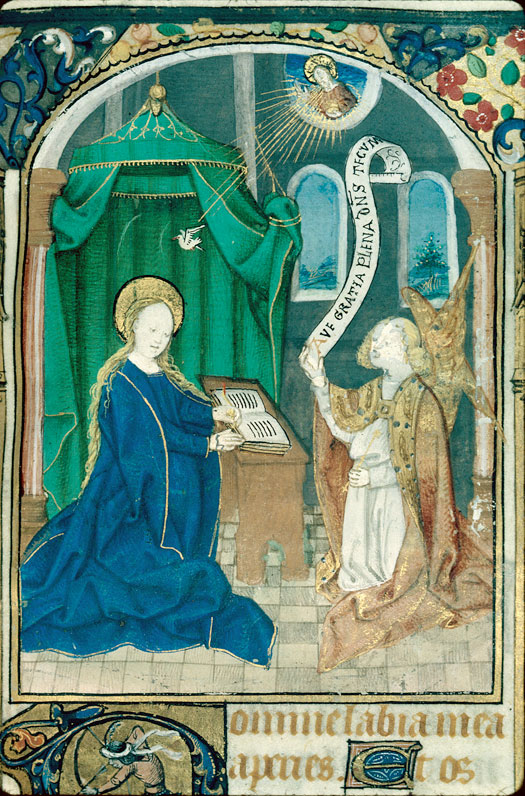 AVE GRATIA PLENA DNS TECVM
omine labia mea
aperies. Et os